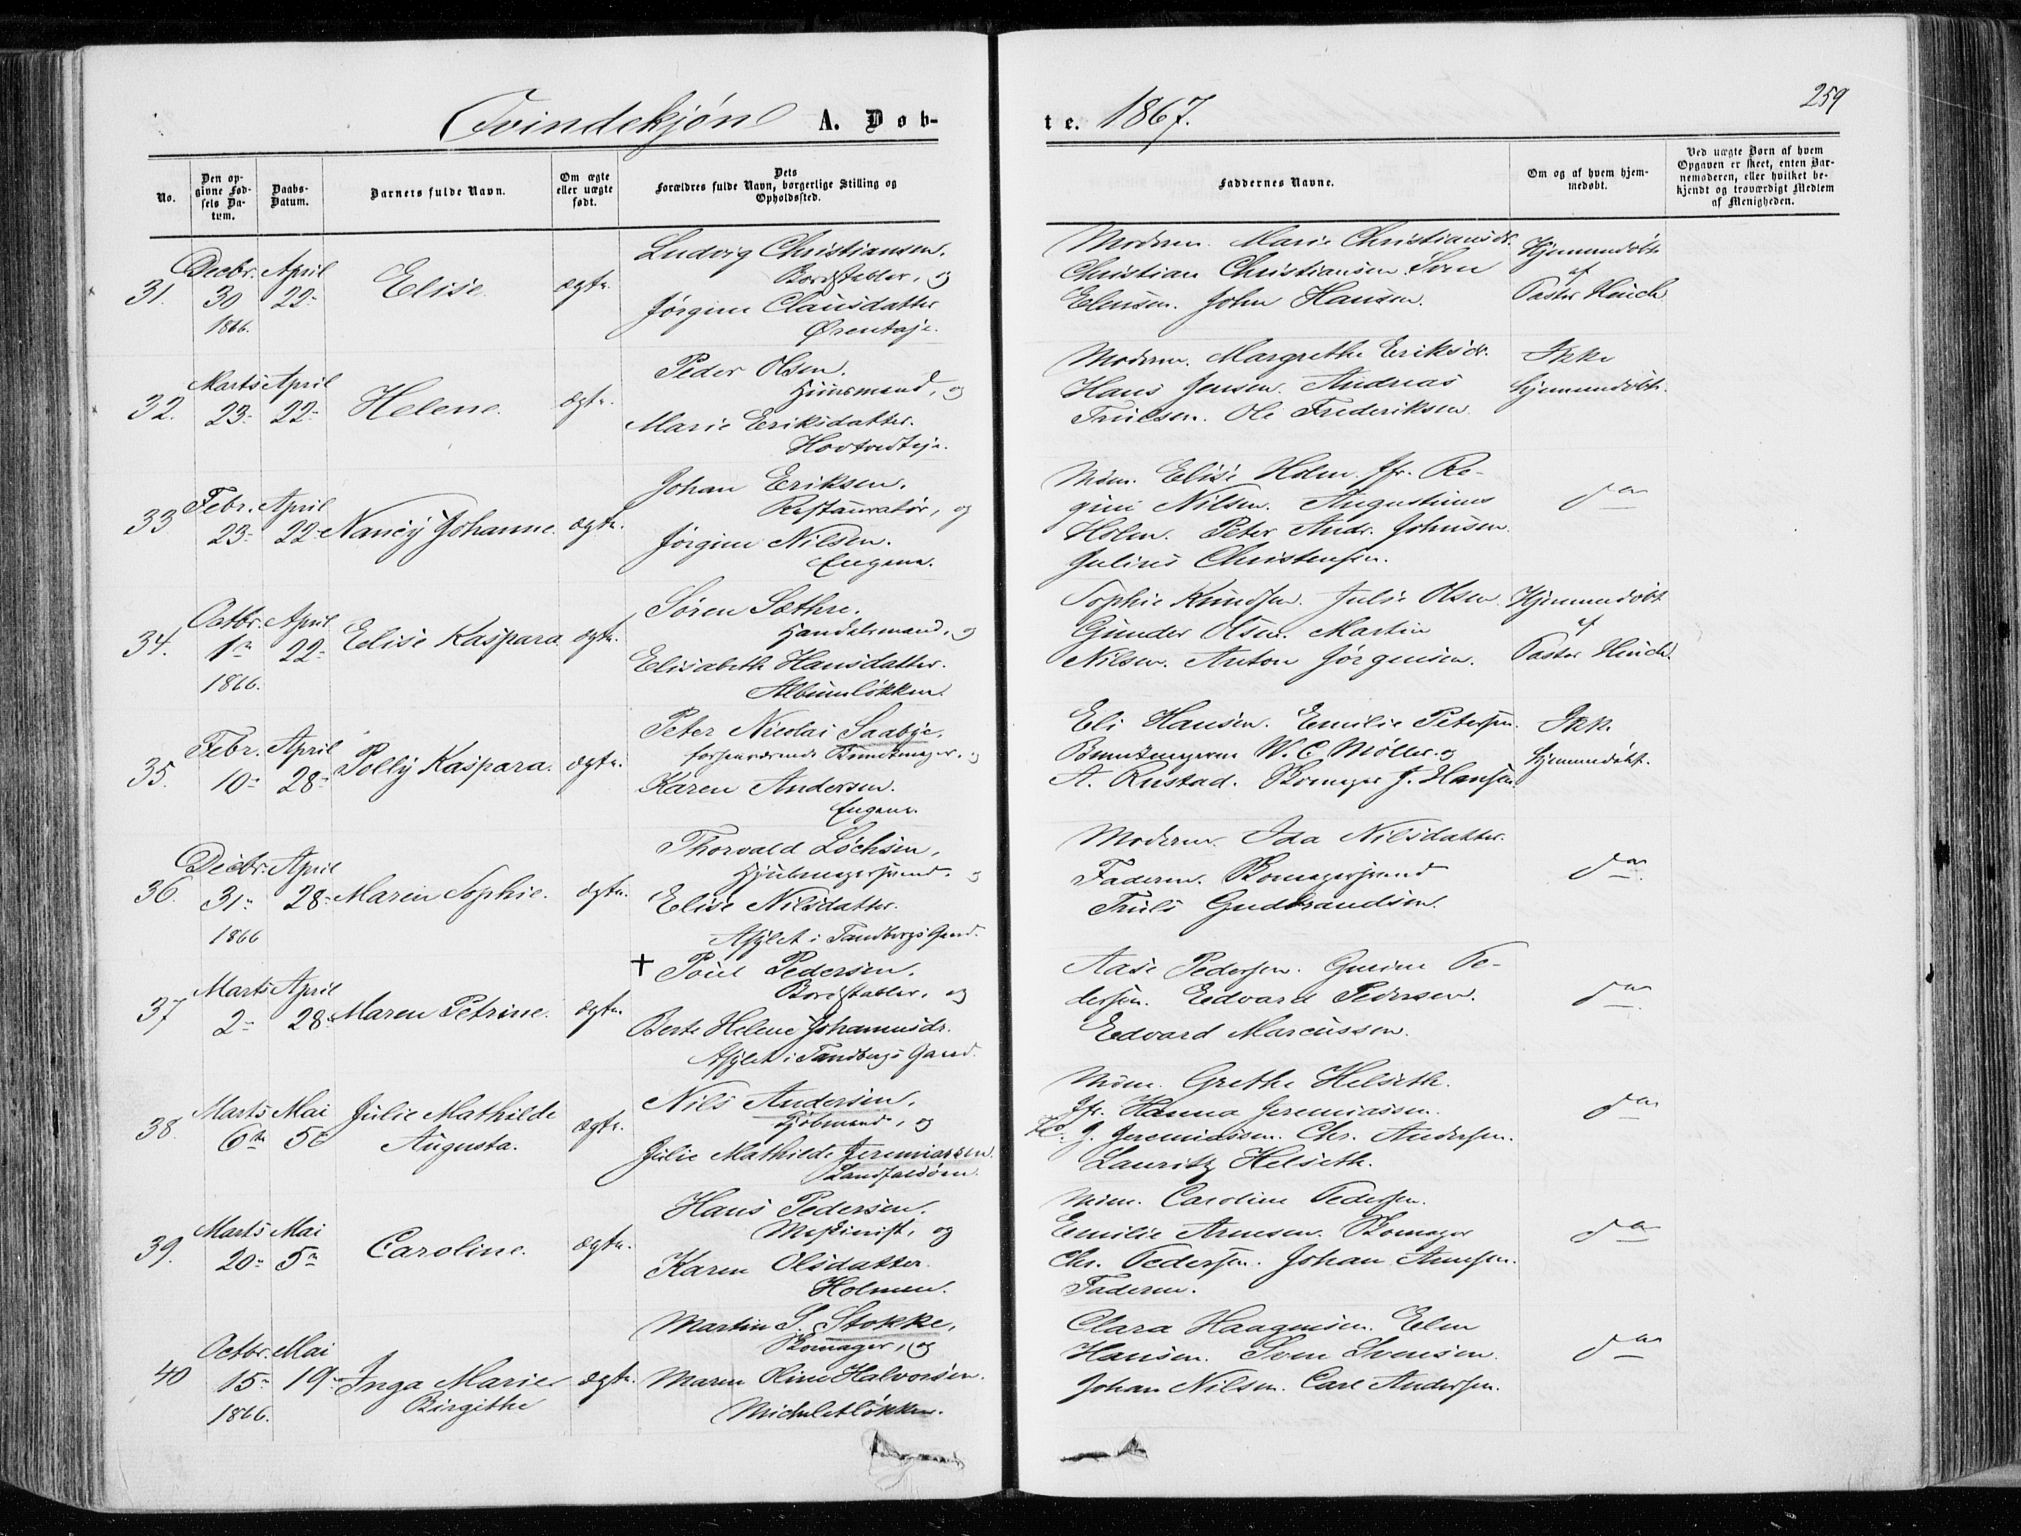 259
Qvindekjøn A. Døb-
te. 1867.
No.
Den op-
givne Fød-
sels Da-
tum.
Daabs-
Datum.
Barnets fulde Navn.
Om ægte
eller uægte
født.
Dets
Forældres fulde Navn, borgerlige Stilling og
Opholdssted.
Faddernes Navne.
Om og af hvem hjem-
medøbt.
Ved uægte Børn af hvem
Opgaven er skeet, enten Bar-
nemoderen, eller hvilket be-
kjendt og troværdigt Medlem
af Menigheden.
31. Decbr. 30 1866. April 22 Elise. ægte.
Ludvig Christiansen.
Bordstabler, og
Jørgine Clausdatter
Ørenteje.
Moderen. Marie Christiansdr.
Christian Christiansen. Sven
Elensen. John Hansen.
Hjemmedøbt
af
Pastor Hück
32. Marts 23 April 22 Helene. ægte.
Peder Olsen.
Huusmand, og
Marie Eriksdatter.
Hovtvedteje.
Moderen. Margrethe Eriksdr.
Hans Jensen. Andreas
Trulsen. Ole Frederiksen.
Ikke
hjemmedøbt.
33 Febr. 23 April 22 Nancy Johanne. ægte.
Johan Eriksen.
Restauratør, og
Jørgine Nilsen.
Engene.
Mdm. Elise Holm. Jfr. Re-
gine Nilsen. Augustinus
Holm. Peter Andr. Johnsen.
Julius Christensen.
do
34. Octbr. 1 1866. April 22 Elise Kaspara ægte.
Søren Sæthre.
Handelsmand, og
Elisabeth Hansdatter.
Albumløkken.
Sophie Knudsen. Julie Olsen.
Gunder Olsen. Martin
Nilsen. Anton Jørgensen.
Hjemmedøbt
af
Pastor Hück.
35. Febr. 10 April 28 Polly Kaspara. ægte.
Peter Nicolai Saabye.
forhenværende Buntmager, og
Karen Andersen.
Engene.
Eli Hansen. Emilie Petersen.
Buntmagerne W. C. Møller og
A. Rustad. Skomager J. Hansen
Ikke
hjemmedøbt.
36. Decbr. 31 1866 April 28 Maren Sophie. ægte.
Thorvald Løchsen,
Hjulmagersvend, og
Elise Nilsdatter.
Asylet i Tandbergs Gaard.
Moderen. Ida Nilsdatter.
Faderen. Skomagersvend
Truls Gudbrandsen.
do
37 Marts 2 April 28 Maren Petrine. ægte.
† Poul Pedersen.
Bordstabler, og
Berte Helene Johannesdr.
Asylet i Tandbergs Gaard.
Aase Pedersen. Gurine Pe-
dersen. Edvard Pedersen.
Edvard Marcussen.
do
38. Marts 6te Mai 5te Julie Mathilde
Augusta. ægte.
Nils Andersen,
Kjøbmand, og
Julie Mathilde Jeremiassen
Landfaldøen.
Mdm. Grethe Helseth.
Jfr. Hanna Jeremiassen.
J. Jeremiassen. Chr. Andersen.
Lauritz Helseth.
do
39. Marts 20 Mai 5 Caroline. ægte.
Hans Pedersen.
Maskinist, og
Karen Olsdatter.
Holmen.
Mdm. Caroline Pedersen.
Emilie Arnesen. Skomager
Chr. Pedersen. Johan Arnesen.
Faderen.
do
40 Octbr. 15 1866. Mai 19 Inga Marie
Birgithe ægte.
Martin S. Stokke,
Skomager, og
Maren Oline Halvorsen.
Micheletløkken.
Clara Haagensen. Elen
Hansen. Sven Svensen.
Johan Nilsen. Carl Andersen.
do